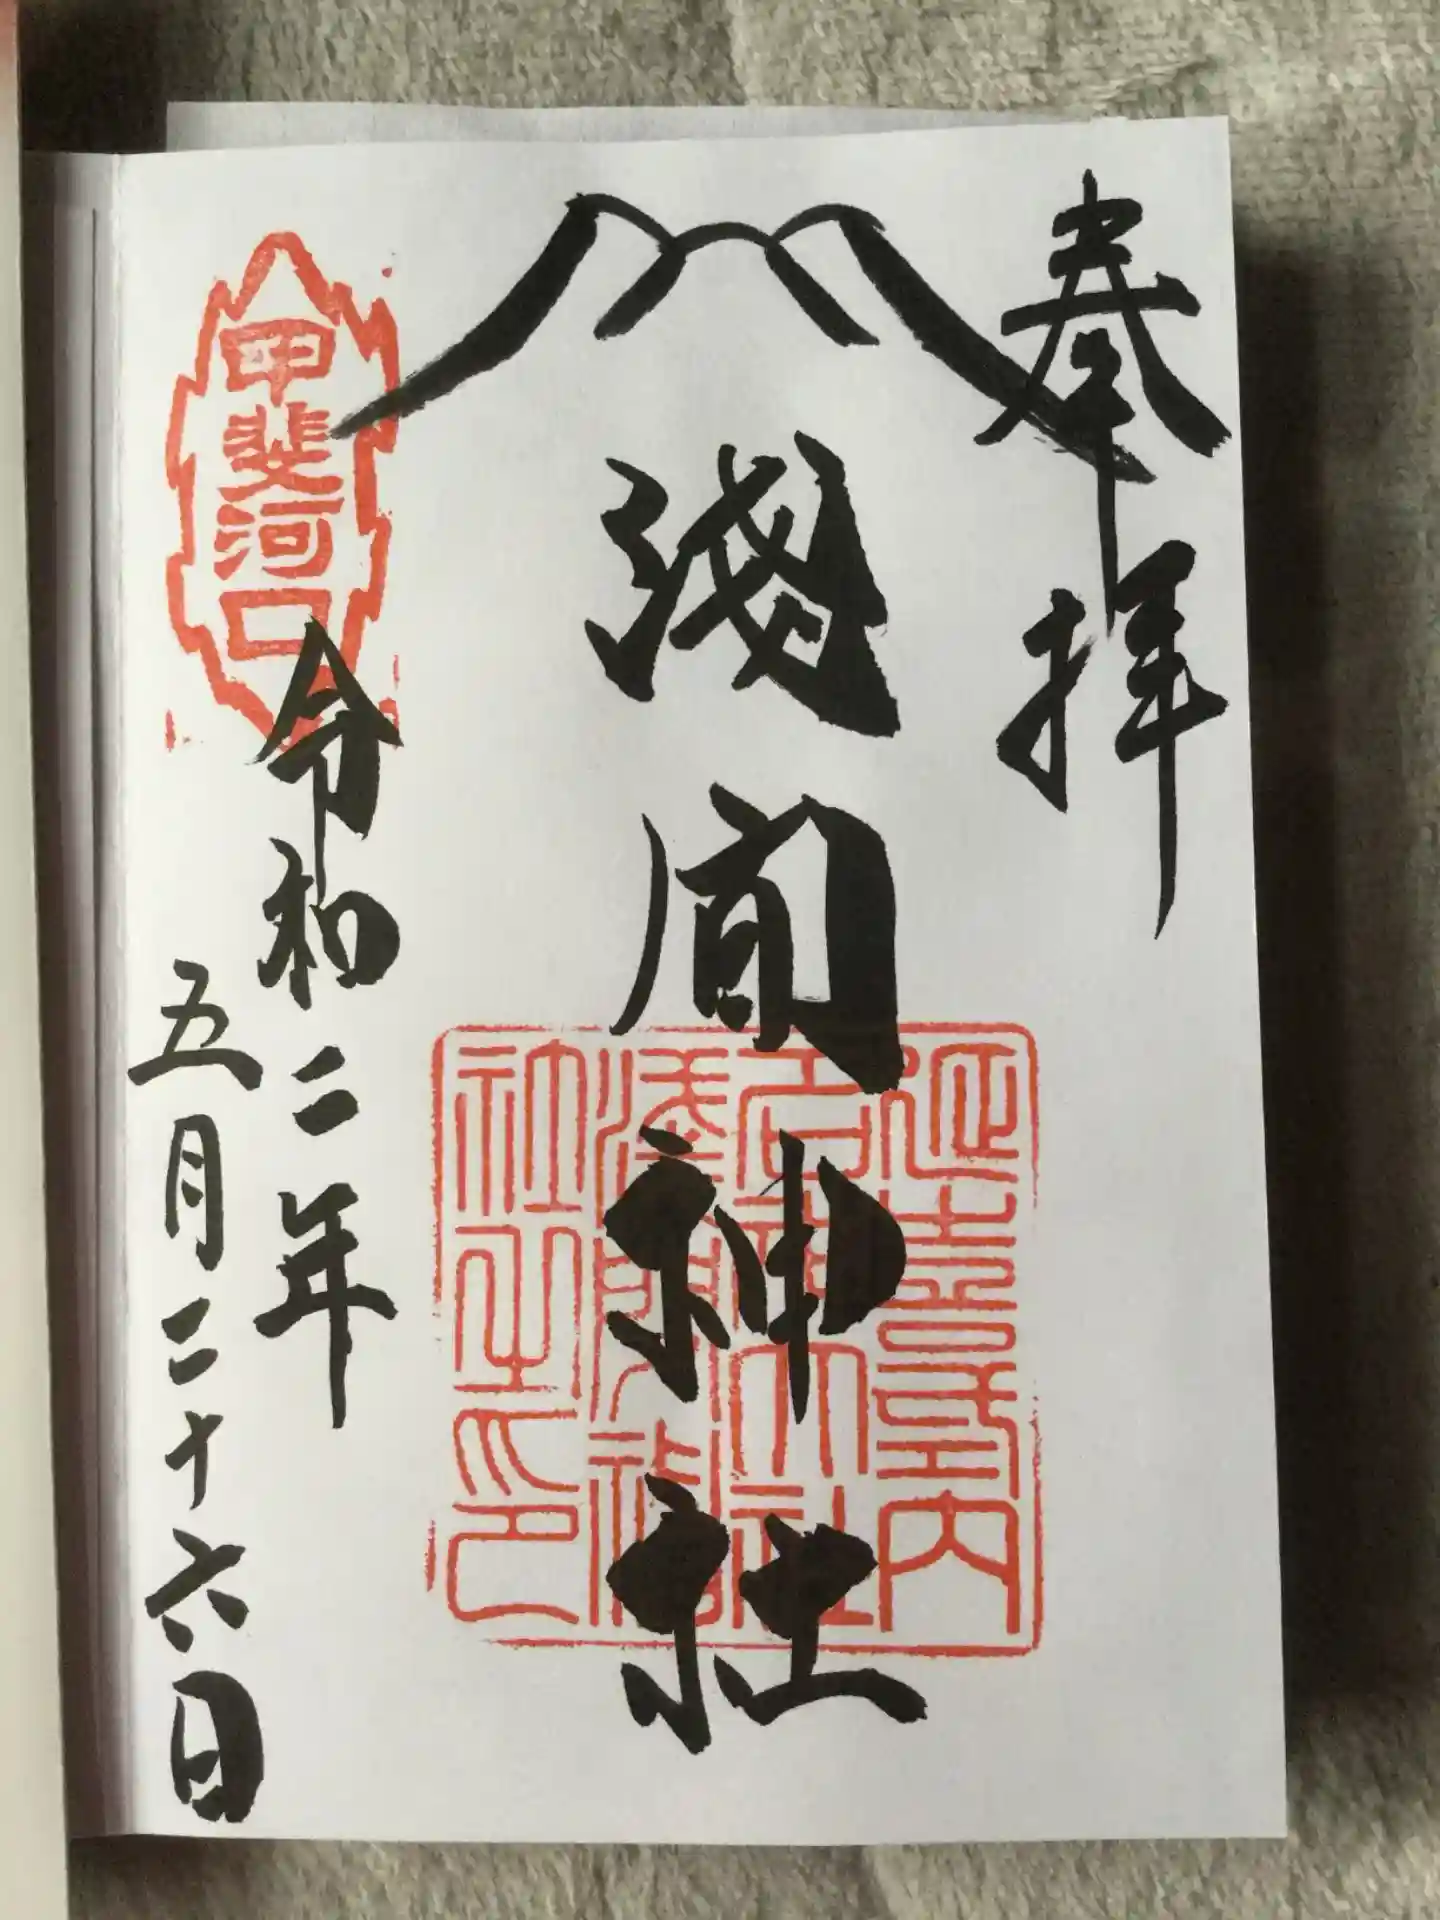 奉拝
淺間神社
延喜式内
名神大社
淺間神
社之印
甲斐河口
令和二年
五月二十六日